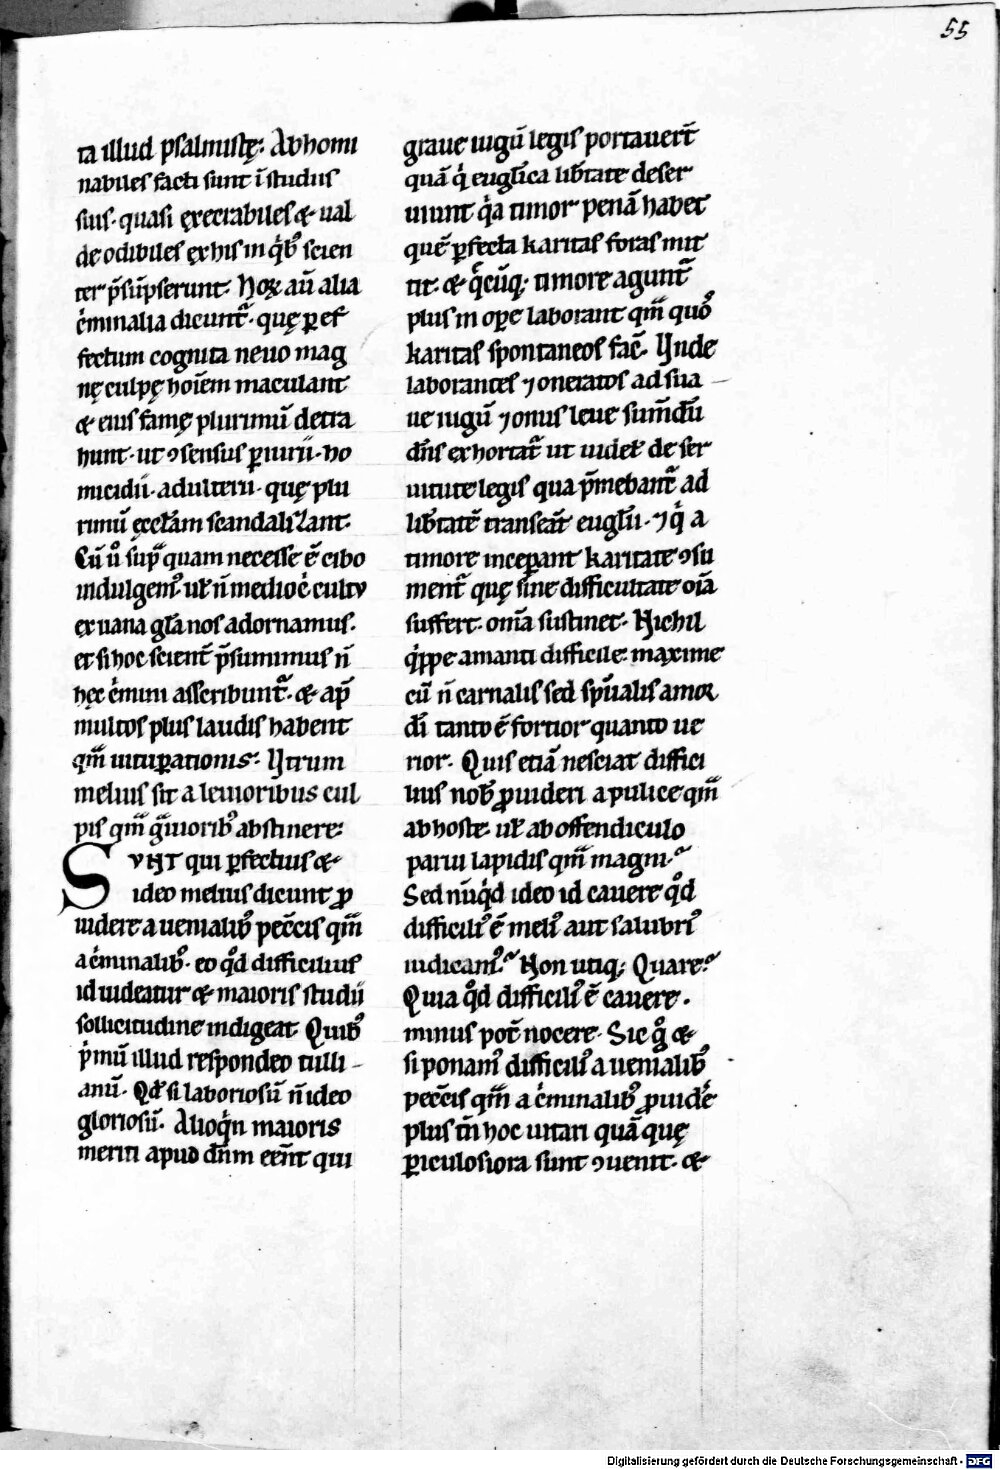 55
ta illud psalmistę: Abhomi
nabiles facti sunt ī studiis
suis. quasi ęxecrabiles & ual
de odibiles ex his in q̇b᷒ scien
ter p̄sūpserunt. Hoꝝ aū alia
c̍minalia dicunt᷑. quę ꝑ ef
fectum cognita neuo mag
nę culpę hoīem maculant
& eius famę plurimū detra
hunt. ut ꝯsensus ꝑiurii. ho
micidii. adulterii. quę plu
rimū ęccl̄am scandalizant.
Cū ů sup̄ quam necesse ē cibo
indulgem᷒. uł n̄ medioc̍ cultu
ex uana gl̄a nos adornamus.
et si hoc scient̄ p̄sumimus n̄
hęc c̍mini asscribunt᷑. & ap̄
multos plus laudis habent
qm̄ uituꝑationis. Utrum
melius sit a leuioribus cul
pis qm̄ g̃uiorib᷒ abstinere:
SUNT qui ꝑfectius &
ideo melius dicunt ꝓ
uidere a uenialib᷒ pecc̄is qm̄
a c̍minalib᷒. eo qd̊ difficilius
id uideatur & maioris studii
sollicitudine indigeat. Quib᷒
p̍mū illud respondeo tulli
anū. Qđ si laboriosū n̄ ideo
gloriosū. Alioq̍n maioris
meriti apud dn̄m eēnt qui
graue iugū legis portauerт̄
quā q̍ euglica lib̄tate deser
uiunt q̍a timor penā habet
quē ꝑfecta karitas foras mit
tit. & q̍cūq; timore agunt᷑
plus in oꝑe laborant qm̄ quo᷒
karitas spontaneos fac̄. Unde
laborantes ⁊ oneratos ad sua
ue iugū ⁊ onus leue sumđū
dn̄s exhortat᷑ ut uidel̄ de ser
uitute legis qua p̄mebant᷑ ad
lib̄tatē transeāt eugłii. ⁊ q̍ a
timore inceꝑant karitate ꝯsu
ment᷑ quę sine difficultate oīa
suffert. om̄a sustinet. Nichil
q̍ppe amanti difficile. maxime
cū n̄ carnalis sed sp̄ualis amor
dī tanto ē fortior quanto ue
rior. Quis etiā nesciat diffici
lius nob᷒ ꝓuideri a pulice qm̄
ab hoste. uł ab offendiculo
parui lapidis qm̄ magni.
Sed nūq̍d ideo id cauere qd̊
difficili᷒ ē meli᷒ aut salubri᷒
iudicam᷒. Non utiq;. Quare.
Quia qd̊ difficili᷒ ē cauere.
minus pot̄ nocere. Sic g̊ &
si ponam᷒ difficili᷒ a uenialib᷒
pecc̄is qm̄ a c̍minalib᷒ ꝓuidēe
plus tn̄ hoc uitari quā quę
ꝑiculosiora sunt ꝯuenit. &
Digitalisierung gefördert durch die Deutsche Forschungsgemeinschaft - DFG